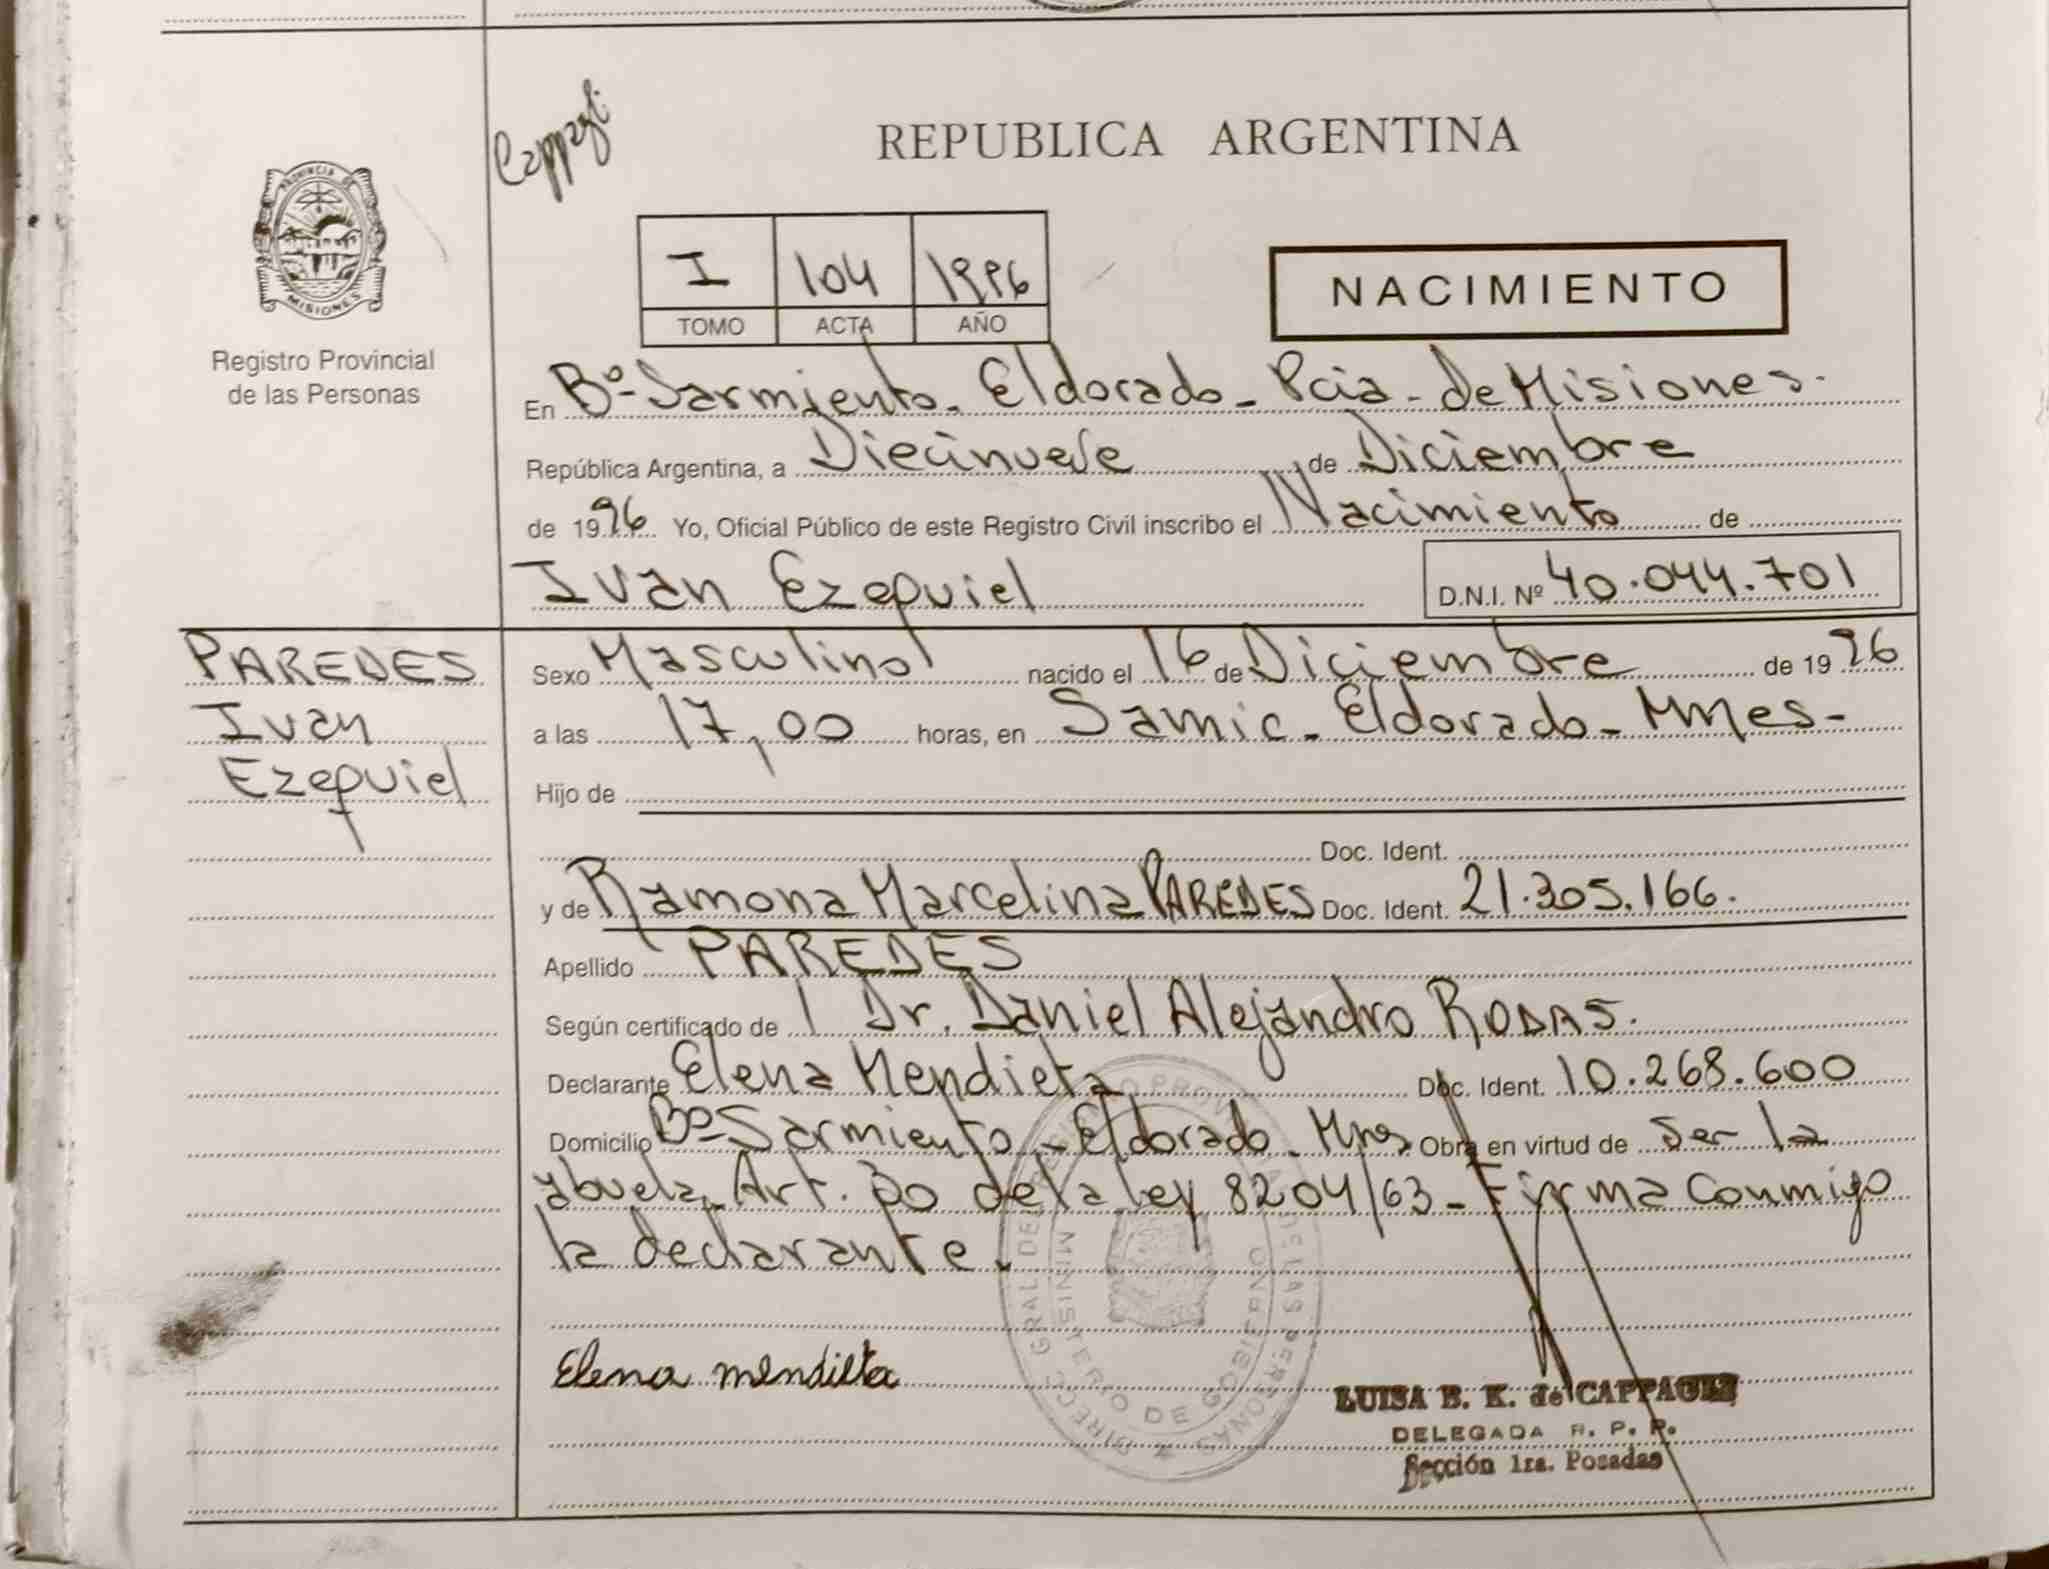 Cappagli
REPUBLICA ARGENTINA
PROVINCIA DE
MISIONES
Registro Provincial
de las Personas
I 104 1996
TOMO ACTA AÑO
NACIMIENTO
En Bº Sarmiento - Eldorado - Pcia - de Misiones.
República Argentina, a Diecinueve de Diciembre
de 1996 Yo, Oficial Público de este Registro Civil inscribo el Nacimiento de
Ivan Ezequiel D.N.I. Nº 40.044.701
PAREDES
Ivan
Ezequiel
Sexo Masculino nacido el 16 de Diciembre de 1996
a las 17,00 horas, en Samic - Eldorado - Mnes -
Hijo de
Doc. Ident.
y de Ramona Marcelina PAREDES Doc. Ident. 21.305.166.
Apellido PAREDES
Según certificado de Dr. Daniel Alejandro RODAS.
Declarante Elena Mendieta Doc. Ident. 10.268.600
Domicilio Bº Sarmiento - Eldorado - Mnes Obra en virtud de ser la
abuela. Art. 30 de la ley 8204/63 - Firma Conmigo
la declarante.
Elena mendieta
DIRECC. GRAL DEL REGISTRO PROVINCIAL DE LAS PERSONAS
MINISTERIO DE GOBIERNO
LUISA B. K. de CAPPAGLI
DELEGADA R. P. P.
Sección 1ra. Posadas